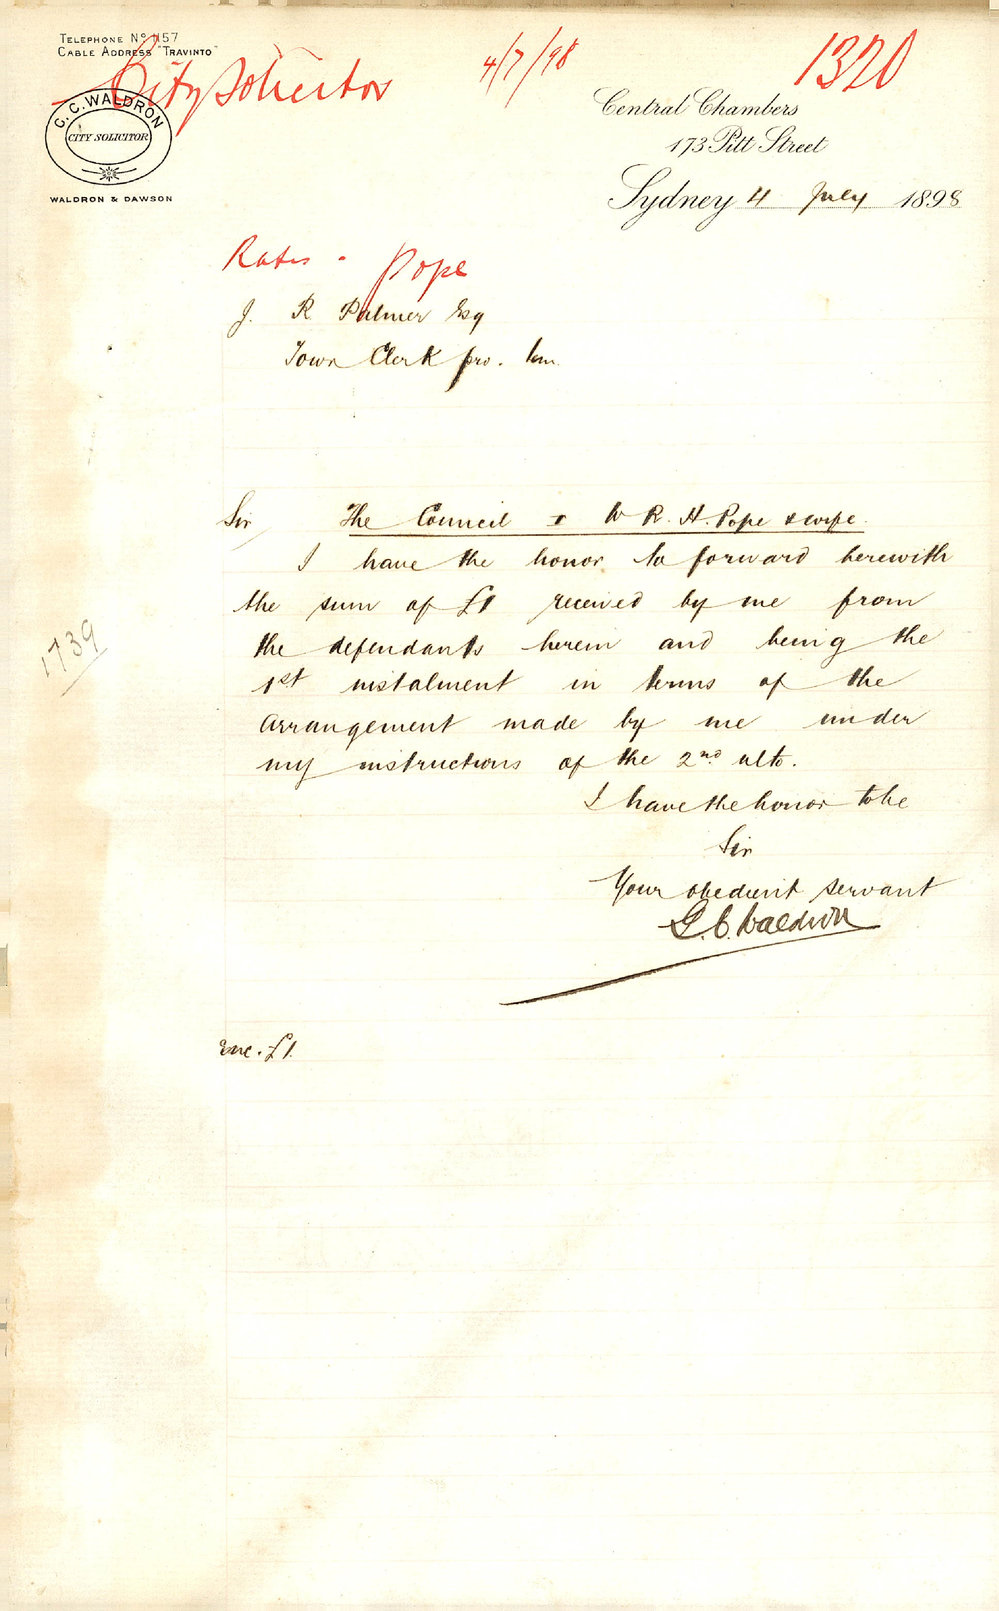 TELEPHONE No 1157
CABLE ADDRESS "TRAVINTO"
City Solicitor
4/7/98
1320
G. C. WALDRON
CITY SOLICITOR
WALDRON & DAWSON
Central Chambers
173 Pitt Street
Sydney 4 July 1898
Rates - Pope
J. R Palmer Esq
Town Clerk pro. tem
Sir The Council v W R. H. Pope & wife.
I have the honor to forward herewith
the sum of £1 received by me from
the defendants herein and being the
1st instalment in terms of the
arrangement made by me under
my instructions of the 2nd ulto.
I have the honor to be
Sir
Your obedient servant
G. C. Waldron
Enc. £1.
1739